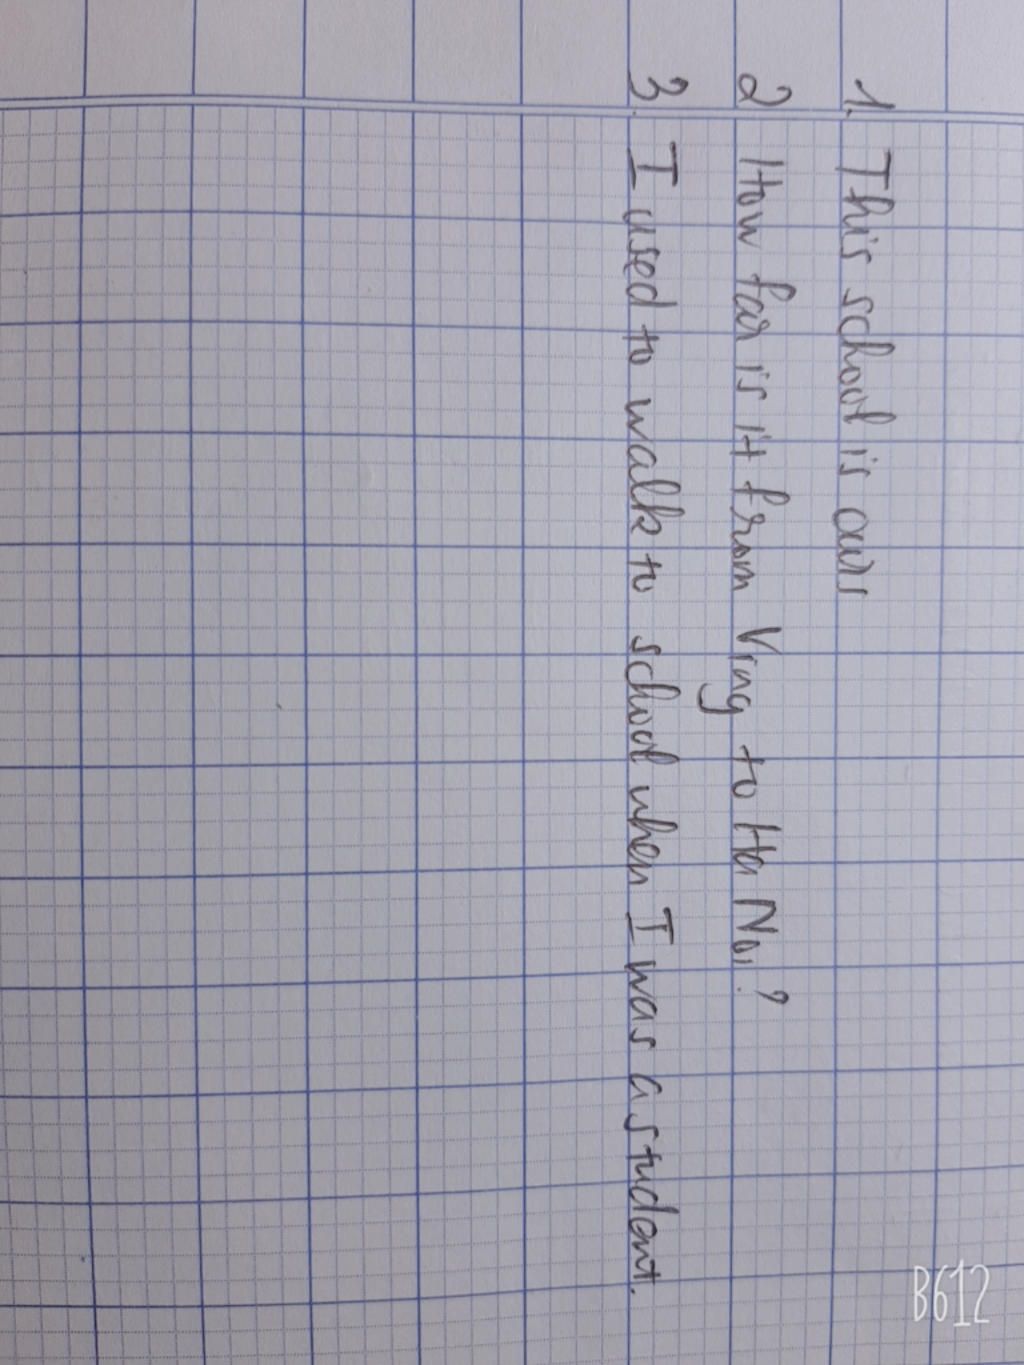 1. This school is ours
2 How far is it from Ving to Ha Noi?
3. I used to walk to school when I was a student.
B612